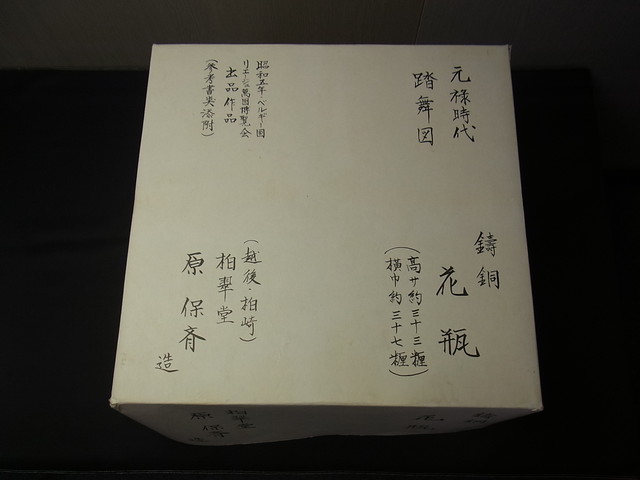 元禄時代
踏舞図
鋳銅
花瓶
(高サ約三十三糎
横巾約三十七糎)
昭和五年・ベルギー国
リエージュ萬国博覧会
出品作品
(参考書類添附)
(越後・柏崎)
柏翠堂
原保斉
造
花瓶
柏翠堂
原保斉